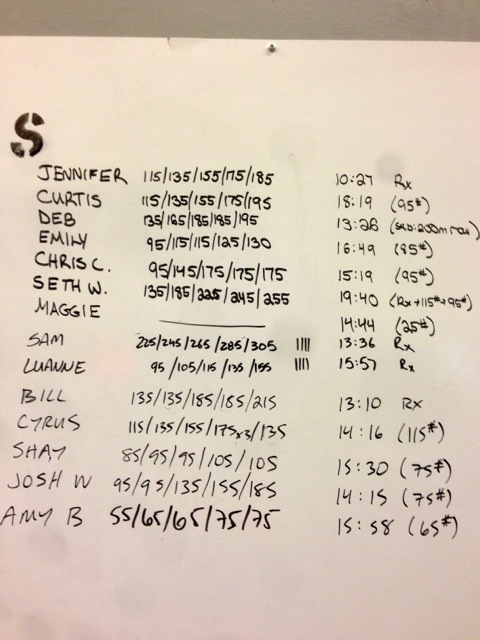 S
JENNIFER 115/135/155/175/185 10:27 Rx
CURTIS 115/135/155/175/195 18:19 (95#)
DEB 135/165/185/185/195 13:28 (sub:200m row)
EMILY 95/115/115/125/130 16:49 (85#)
CHRIS C. 95/145/175/175/175 15:19 (95#)
SETH W. 135/185/225/245/255 19:40 (Rx+115#+95#)
MAGGIE 14:44 (25#)
SAM 225/245/265/285/305 |||| 13:36 Rx
LUANNE 95/105/115/135/155 |||| 15:57 Rx
BILL 135/135/185/185/215 13:10 RX
CYRUS 115/135/155/175x3/135 14:16 (115#)
SHAY 85/95/95/105/105 15:30 (75#)
JOSH W 95/95/135/155/185 14:15 (75#)
AMY B 55/65/65/75/75 15:58 (65#)